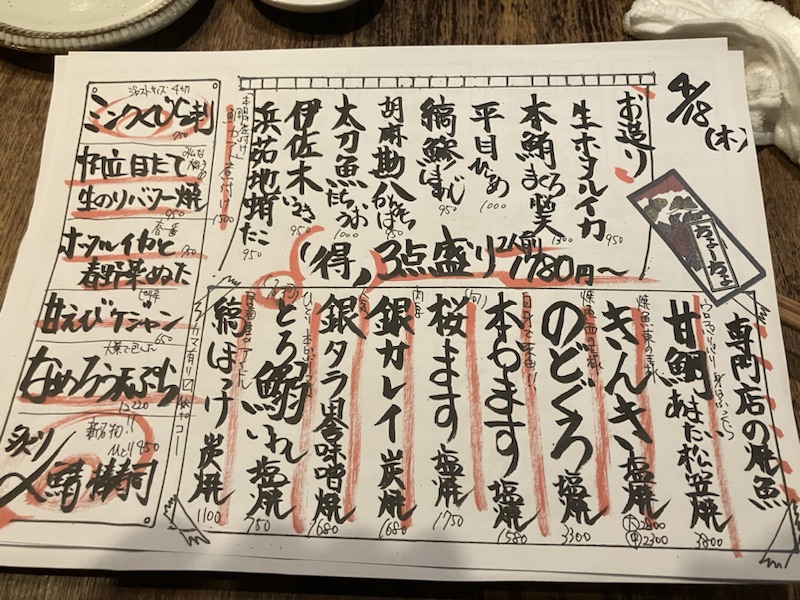 4/18(木)
お造り
生ホタルイカ 950
本鮪まぐろ 1300
平目ひらめ 1000
縞鯵しまあじ 950
胡麻勘八かんぱち 950
太刀魚たちうお 1000
伊佐木いさき 950
浜茹地蛸たこ 950
鯛カブト煮付け 1500
(得)3点盛り 2人前 1780円〜
ちょーちょ
専門店の焼魚
甘鯛あまだい松笠焼 3800
きんき塩焼 大2800 中2300
のどぐろ塩焼 3300
本ます塩焼 1580
桜ます塩焼 1750
銀ガレイ炭焼 1680
銀タラ田舎味噌焼 1680
とろ鰯いわし塩焼 750
縞ほっけ炭焼 1100
ジャストサイズ 4切
ミンクくじら刺
帆立目だて
生のりバター焼 950
ホタルイカと
春野菜ぬた
甘えびケジャン 650
大葉で包んだ
なめろう天ぷら
炙り
〆鯖棒寿司